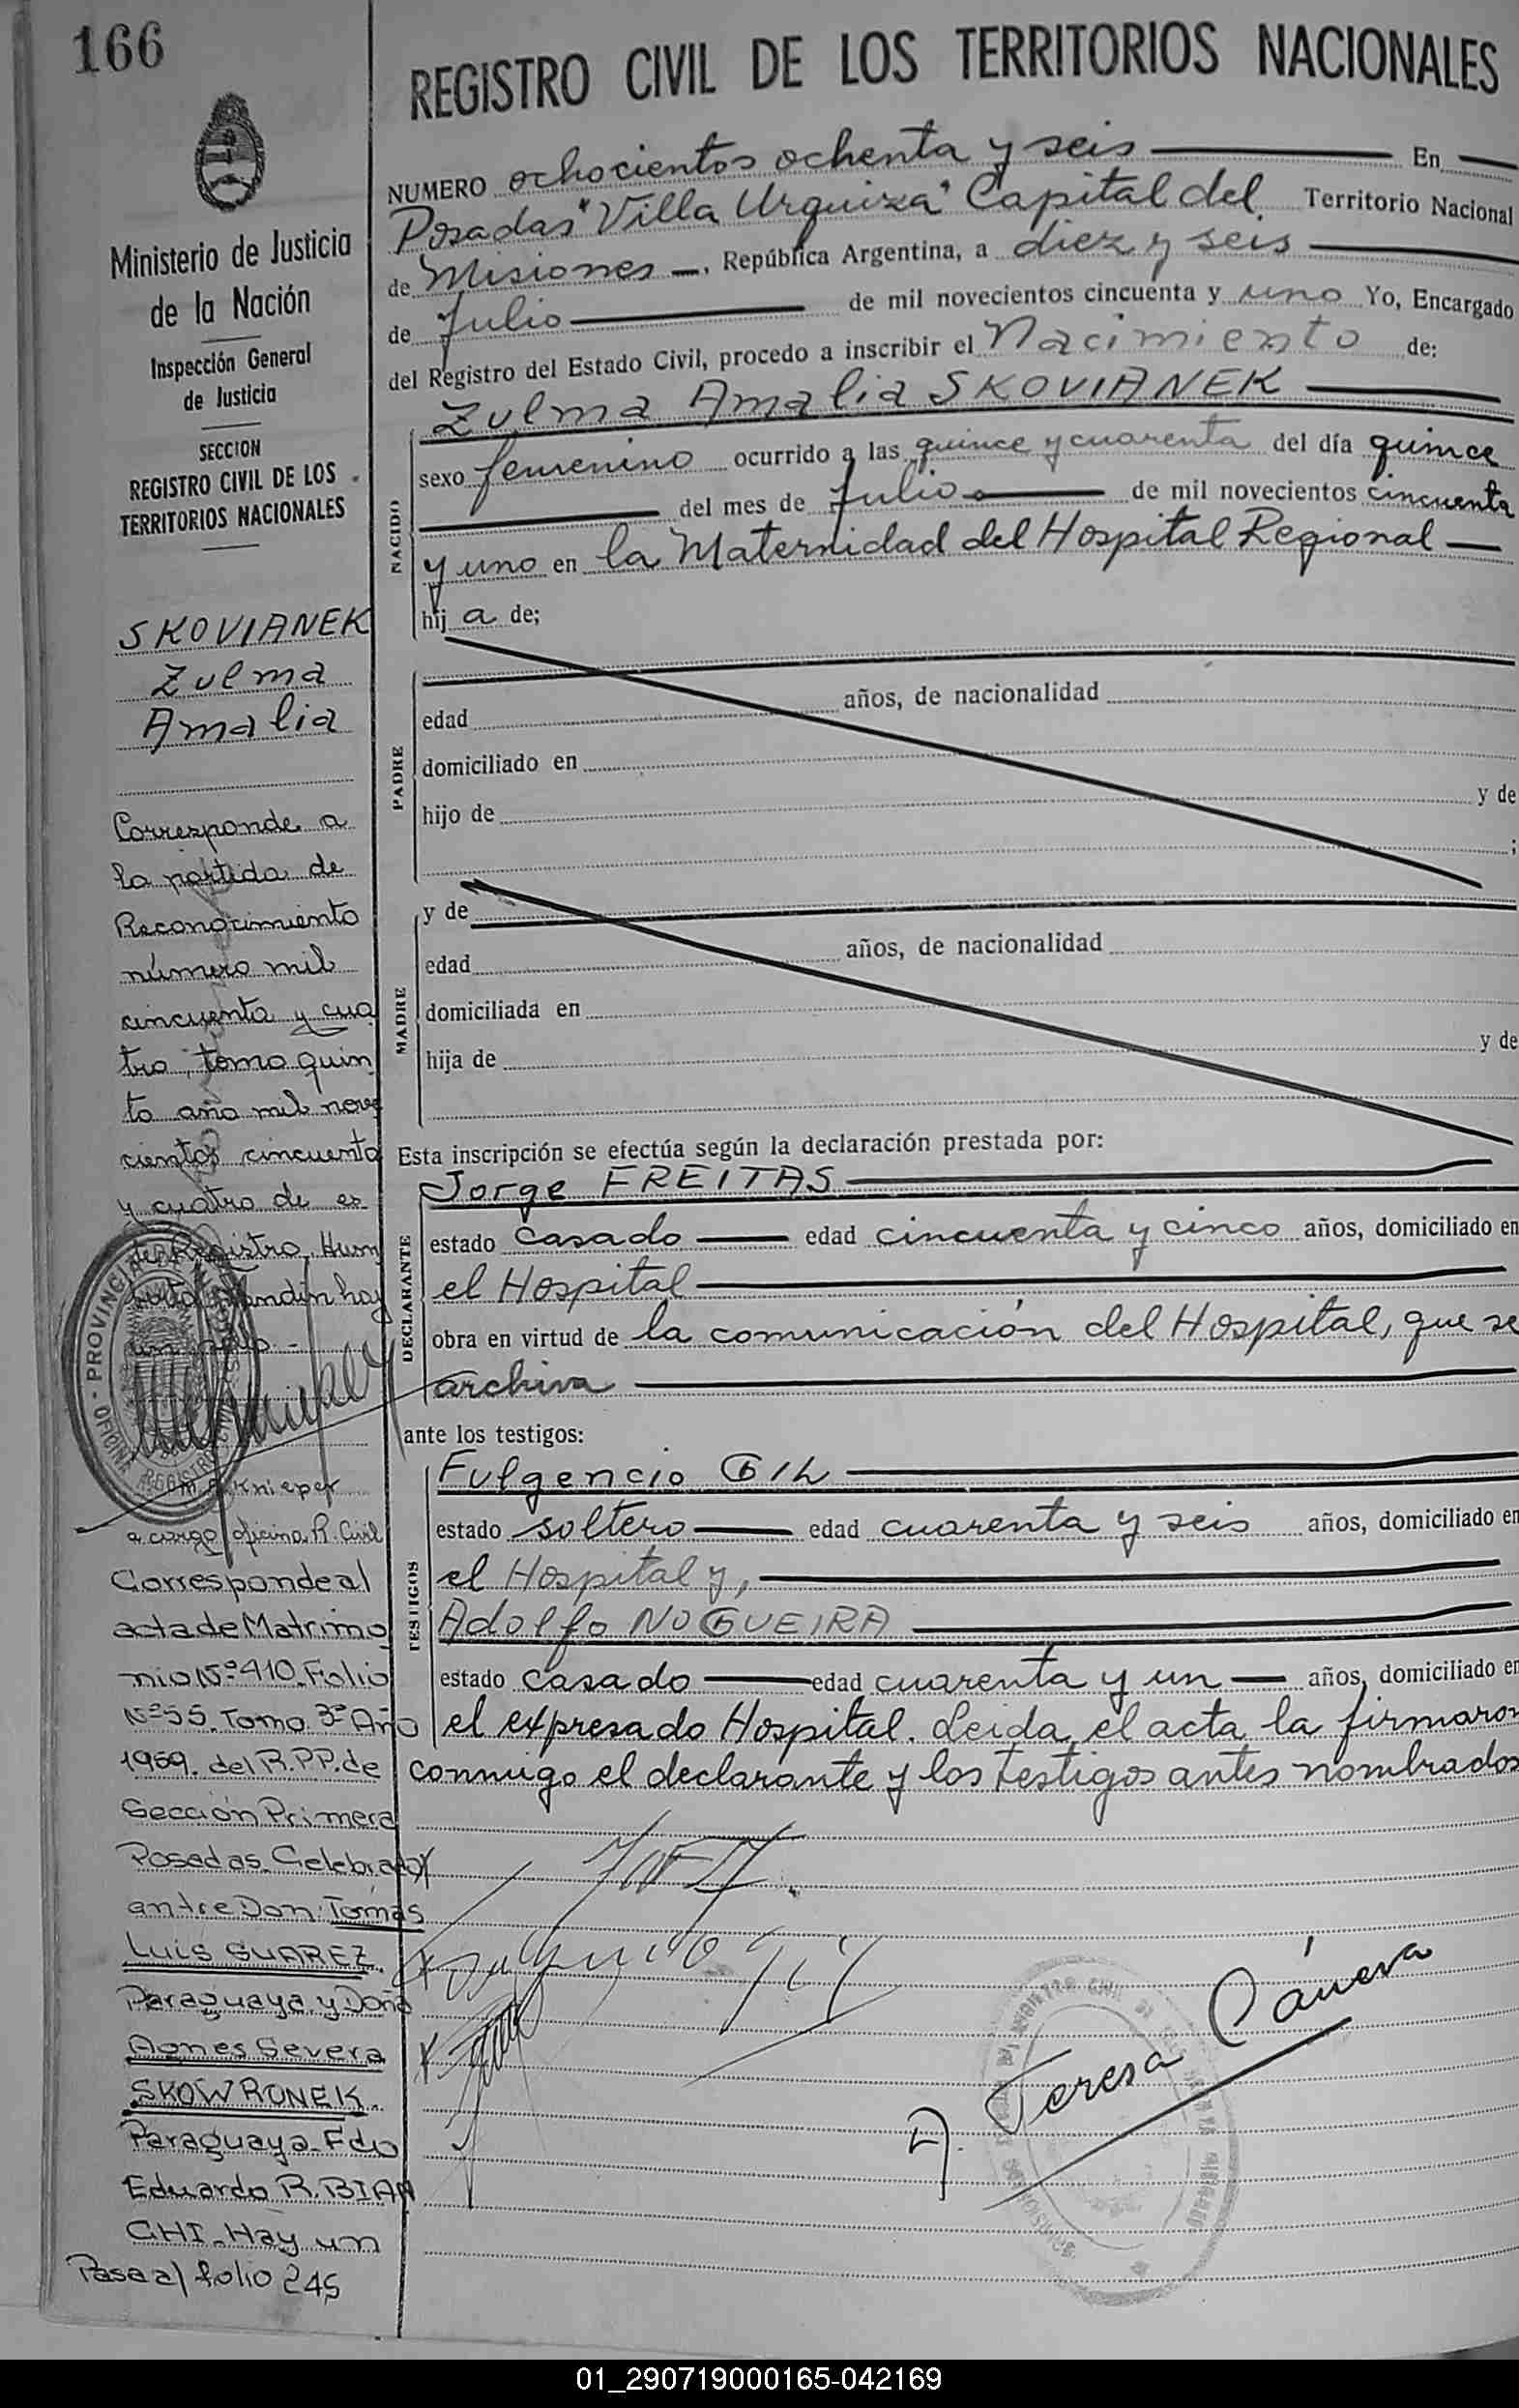 166
REGISTRO CIVIL DE LOS TERRITORIOS NACIONALES
Ministerio de Justicia
de la Nación
Inspección General
de Justicia
SECCION
REGISTRO CIVIL DE LOS
TERRITORIOS NACIONALES
SKOVIANEK
Zulma
Amalia
Corresponde a
la partida de
Reconocimiento
número mil
cincuenta y cua
tro, tomo quin
to año mil nove
cientos cincuenta
y cuatro de es
te Registro. Hum
hay
un sello -
Knieper
a cargo oficina R. Civil
Corresponde al
acta de Matrimo
nio Nº 410. Folio
Nº 55. Tomo 3º Año
1969. del R.P.P. de
Sección Primera
Posadas. Celebrado
entre Don: Tomás
Luis SUAREZ.
Paraguaya y Doña
Agnes Severa
SKOWRONEK.
Paraguaya. Fdo
Eduardo R. BIAN
CHI. Hay un
Pasa al folio 245
NUMERO ochocientos ochenta y seis En
Posadas "Villa Urquiza" Capital del Territorio Nacional
de Misiones, República Argentina, a diez y seis
de Julio de mil novecientos cincuenta y uno Yo, Encargado
del Registro del Estado Civil, procedo a inscribir el Nacimiento de:
Zulma Amalia SKOVIANEK
NACIDO
sexo femenino ocurrido a las quince y cuarenta del día quince
del mes de Julio de mil novecientos cincuenta
y uno en la Maternidad del Hospital Regional
hij a de;
PADRE
edad años, de nacionalidad
domiciliado en
hijo de y de
;
MADRE
y de
edad años, de nacionalidad
domiciliada en
hija de y de
Esta inscripción se efectúa según la declaración prestada por:
Jorge FREITAS
DECLARANTE
estado casado edad cincuenta y cinco años, domiciliado en
el Hospital
obra en virtud de la comunicación del Hospital, que se
archiva
ante los testigos:
Fulgencio GIL
TESTIGOS
estado soltero edad cuarenta y seis años, domiciliado en
el Hospital y,
Adolfo NOGUEIRA
estado casado edad cuarenta y un años, domiciliado en
el expresado Hospital. Leida el acta la firmaron
conmigo el declarante y los testigos antes nombrados
Fulgencio Gil
A. Teresa Cáneva
01_290719000165-042169